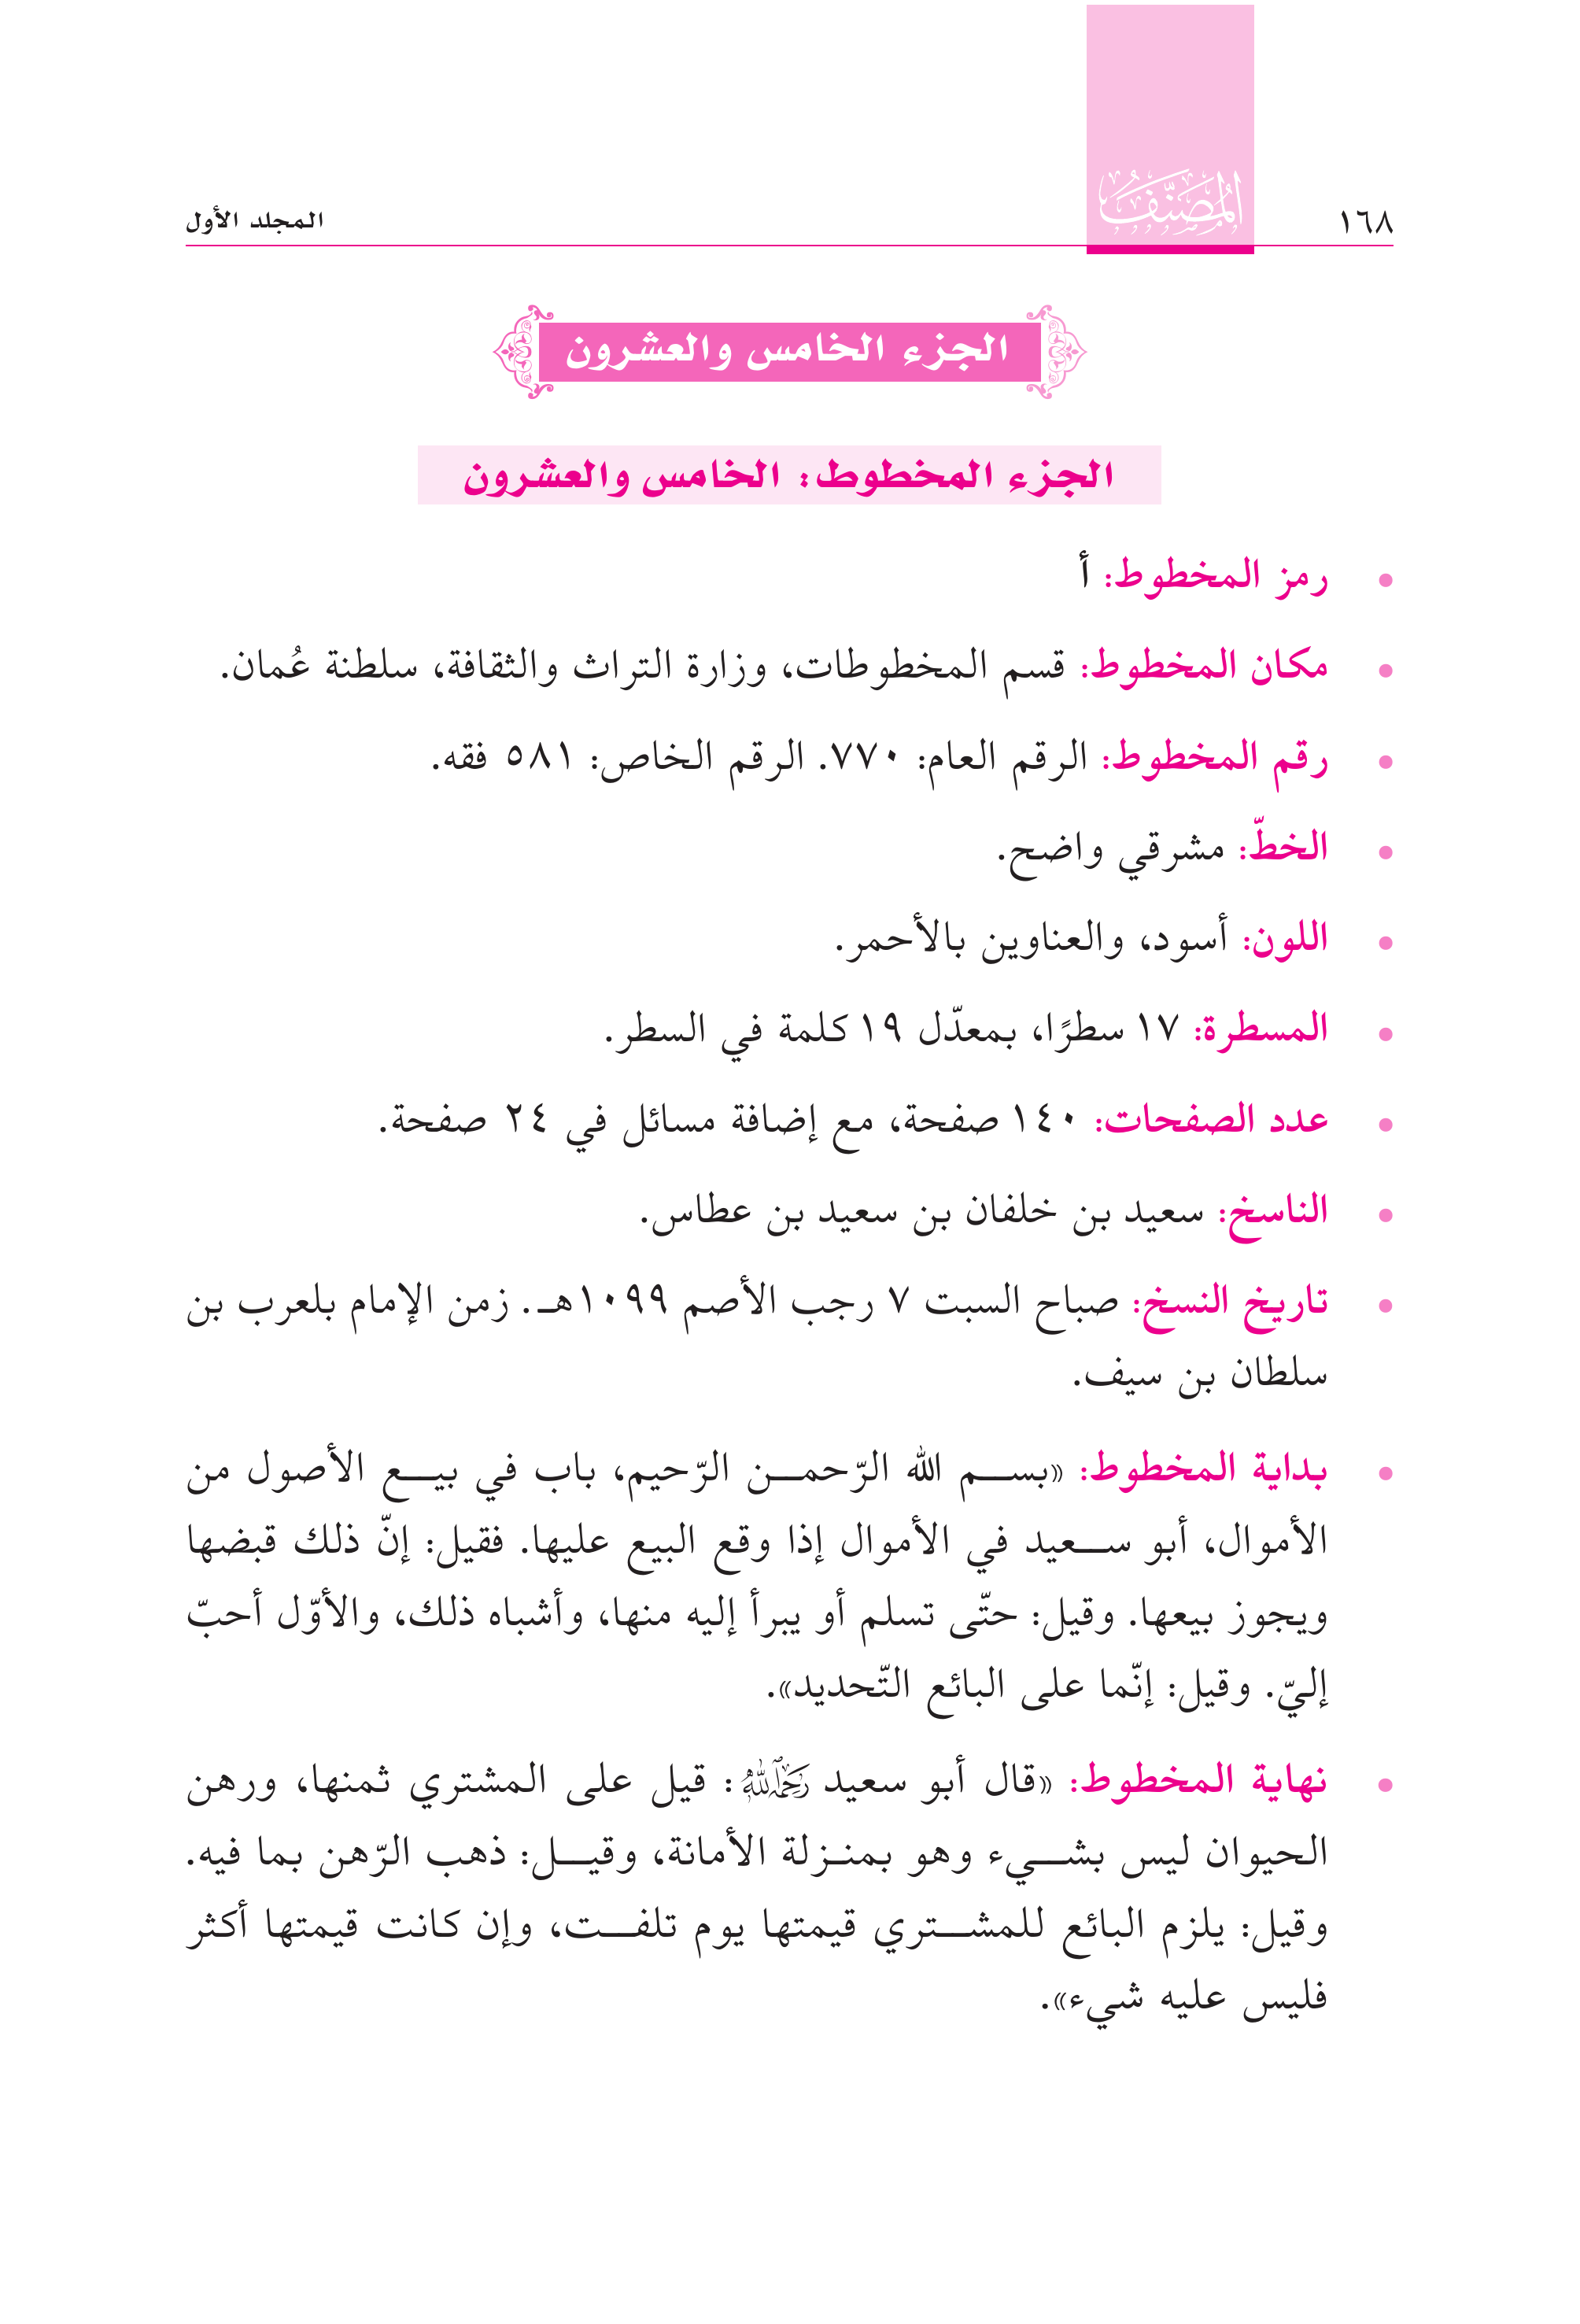 ١٦٨
المُصَنَّفُ
المجلد الأول
الجزء الخامس والعشرون
الجزء المخطوط: الخامس والعشرون
• رمز المخطوط: أ
• مكان المخطوط: قسم المخطوطات، وزارة التراث والثقافة، سلطنة عُمان.
• رقم المخطوط: الرقم العام: ٧٧٠. الرقم الخاص: ٥٨١ فقه.
• الخطّ: مشرقي واضح.
• اللون: أسود، والعناوين بالأحمر.
• المسطرة: ١٧ سطرًا، بمعدّل ١٩ كلمة في السطر.
• عدد الصفحات: ١٤٠ صفحة، مع إضافة مسائل في ٢٤ صفحة.
• الناسخ: سعيد بن خلفان بن سعيد بن عطاس.
• تاريخ النسخ: صباح السبت ٧ رجب الأصم ١٠٩٩هـ. زمن الإمام بلعرب بن
سلطان بن سيف.
• بداية المخطوط: «بسم الله الرّحمن الرّحيم، باب في بيع الأصول من
الأموال، أبو سعيد في الأموال إذا وقع البيع عليها. فقيل: إنّ ذلك قبضها
ويجوز بيعها. وقيل: حتّى تسلم أو يبرأ إليه منها، وأشباه ذلك، والأوّل أحبّ
إليّ. وقيل: إنّما على البائع التّحديد».
• نهاية المخطوط: «قال أبو سعيد رَحِمَهُ اللهُ: قيل على المشتري ثمنها، ورهن
الحيوان ليس بشيء وهو بمنزلة الأمانة، وقيل: ذهب الرّهن بما فيه.
وقيل: يلزم البائع للمشتري قيمتها يوم تلفت، وإن كانت قيمتها أكثر
فليس عليه شيء».